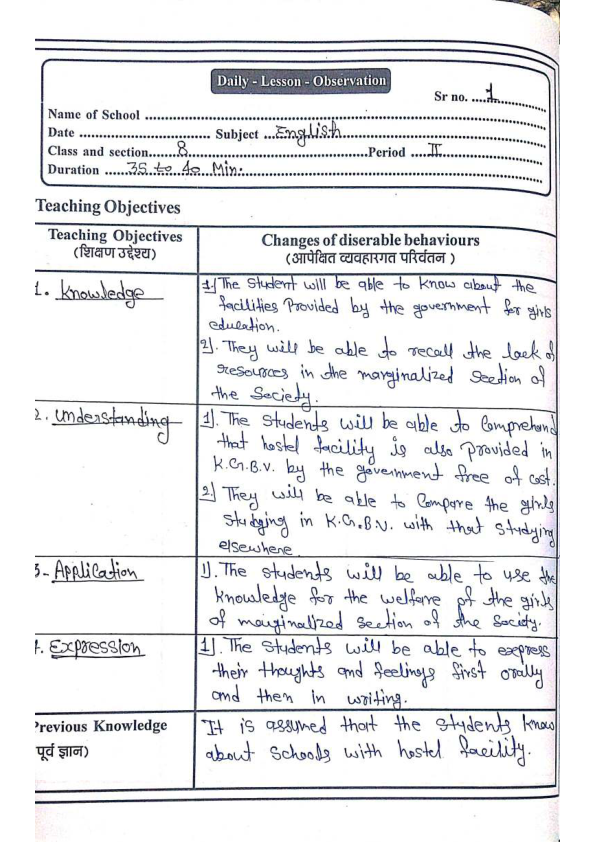 Daily - Lesson - Observation
Sr no. ...1...
Name of School ...
Date ... Subject ...English...
Class and section...8...Period ...II...
Duration ...35 to 40 Min....
Teaching Objectives
Teaching Objectives
(शिक्षण उद्देश्य)
Changes of diserable behaviours
(आपेक्षित व्यवहारगत परिर्वतन )
1. Knowledge
1] The Student will be able to know about the
facilities Provided by the government for girls
education.
2]. They will be able to recall the lack of
resources in the marginalized Section of
the Society.
2. Understanding
1]. The Students will be able to Comprehend
that hostel facility is also provided in
K.G.B.V. by the government free of cost.
2] They will be able to Compare the girls
Studying in K.G.B.V. with that Studying
elsewhere
3- Application
1]. The students will be able to use the
Knowledge for the welfare of the girls
of marginalized section of the Society.
4. Expression
1]. The Students will be able to express
their thoughts and feelings first orally
and then in writing.
Previous Knowledge
पूर्व ज्ञान)
It is assumed that the students know
about Schools with hostel facility.